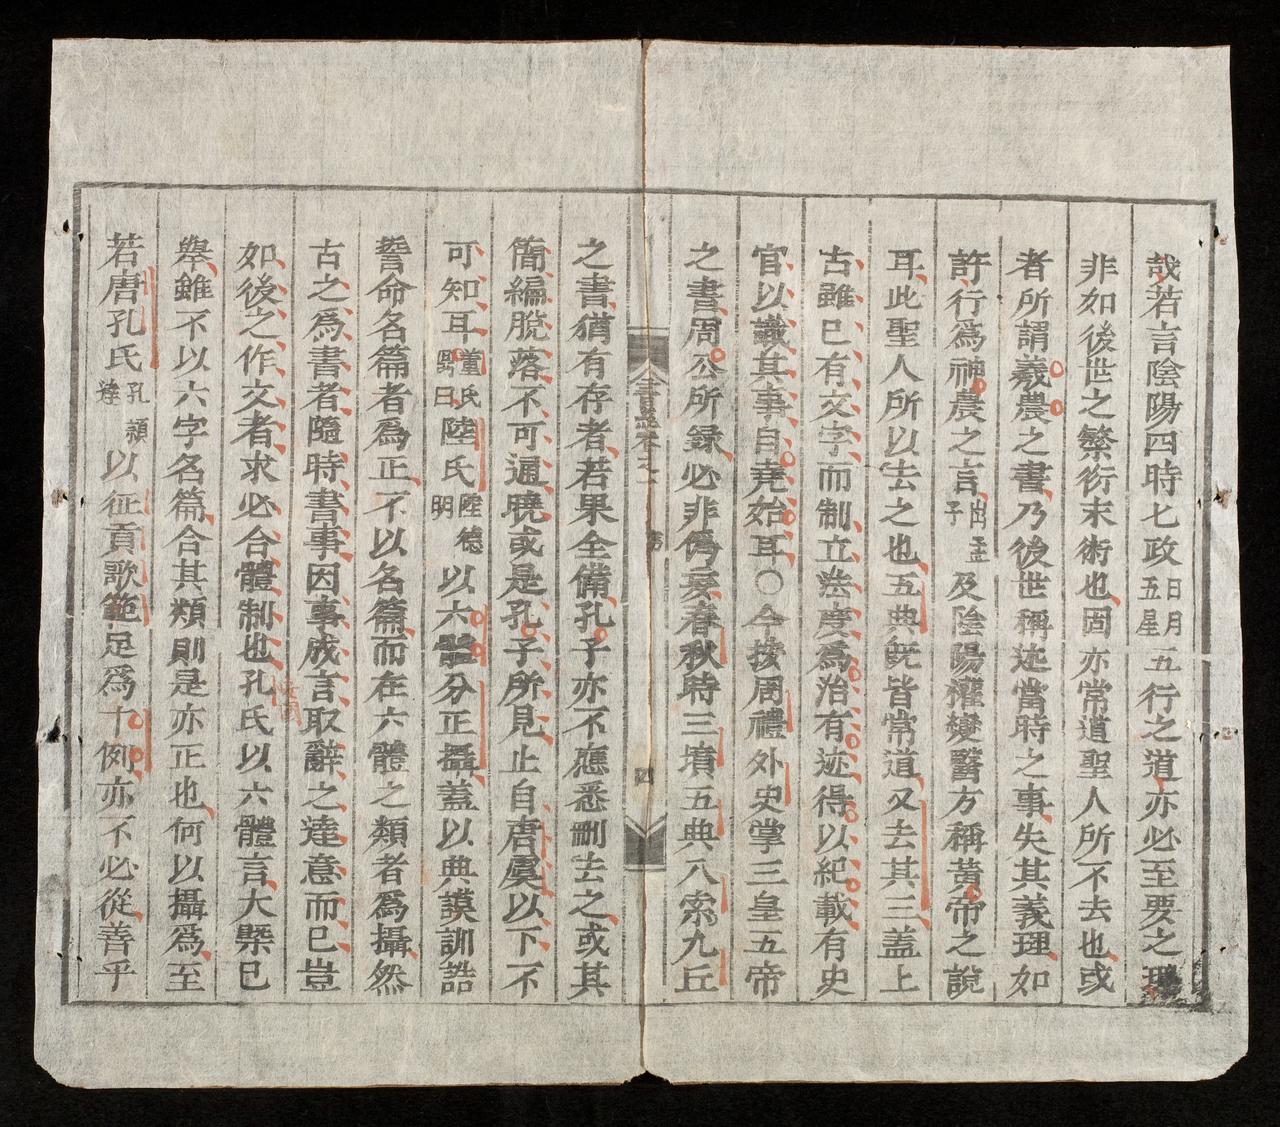 哉若言陰陽四時七政日月五星五行之道亦必至要之理
非如後世之繁衍末術也固亦常道聖人所不去也或
者所謂羲農之書乃後世稱述當時之事失其義理如
許行爲神農之言出孟子及陰陽權變醫方稱黃帝之說
耳此聖人所以去之也五典旣皆常道又去其三蓋上
古雖已有文字而制立法度爲治有迹得以紀載有史
官以識其事自堯始耳○今按周禮外史掌三皇五帝
之書周公所錄必非僞妄春秋時三墳五典八索九丘
之書猶有存者若果全備孔子亦不應悉刪去之或其
簡編脫落不可通曉或是孔子所見止自唐虞以下不
可知耳董氏鼎曰陸氏陸德明以六體分正攝蓋以典謨訓誥
誓命名篇者爲正不以名篇而在六體之類者爲攝然
古之爲書者隨時書事因事成言取辭之達意而已豈
如後之作文者求必合體制也孔氏以六體言大槩已
舉雖不以六字名篇合其類則是亦正也何以攝爲至
若唐孔氏孔穎達以征貢歌範足爲十例亦不必從善乎